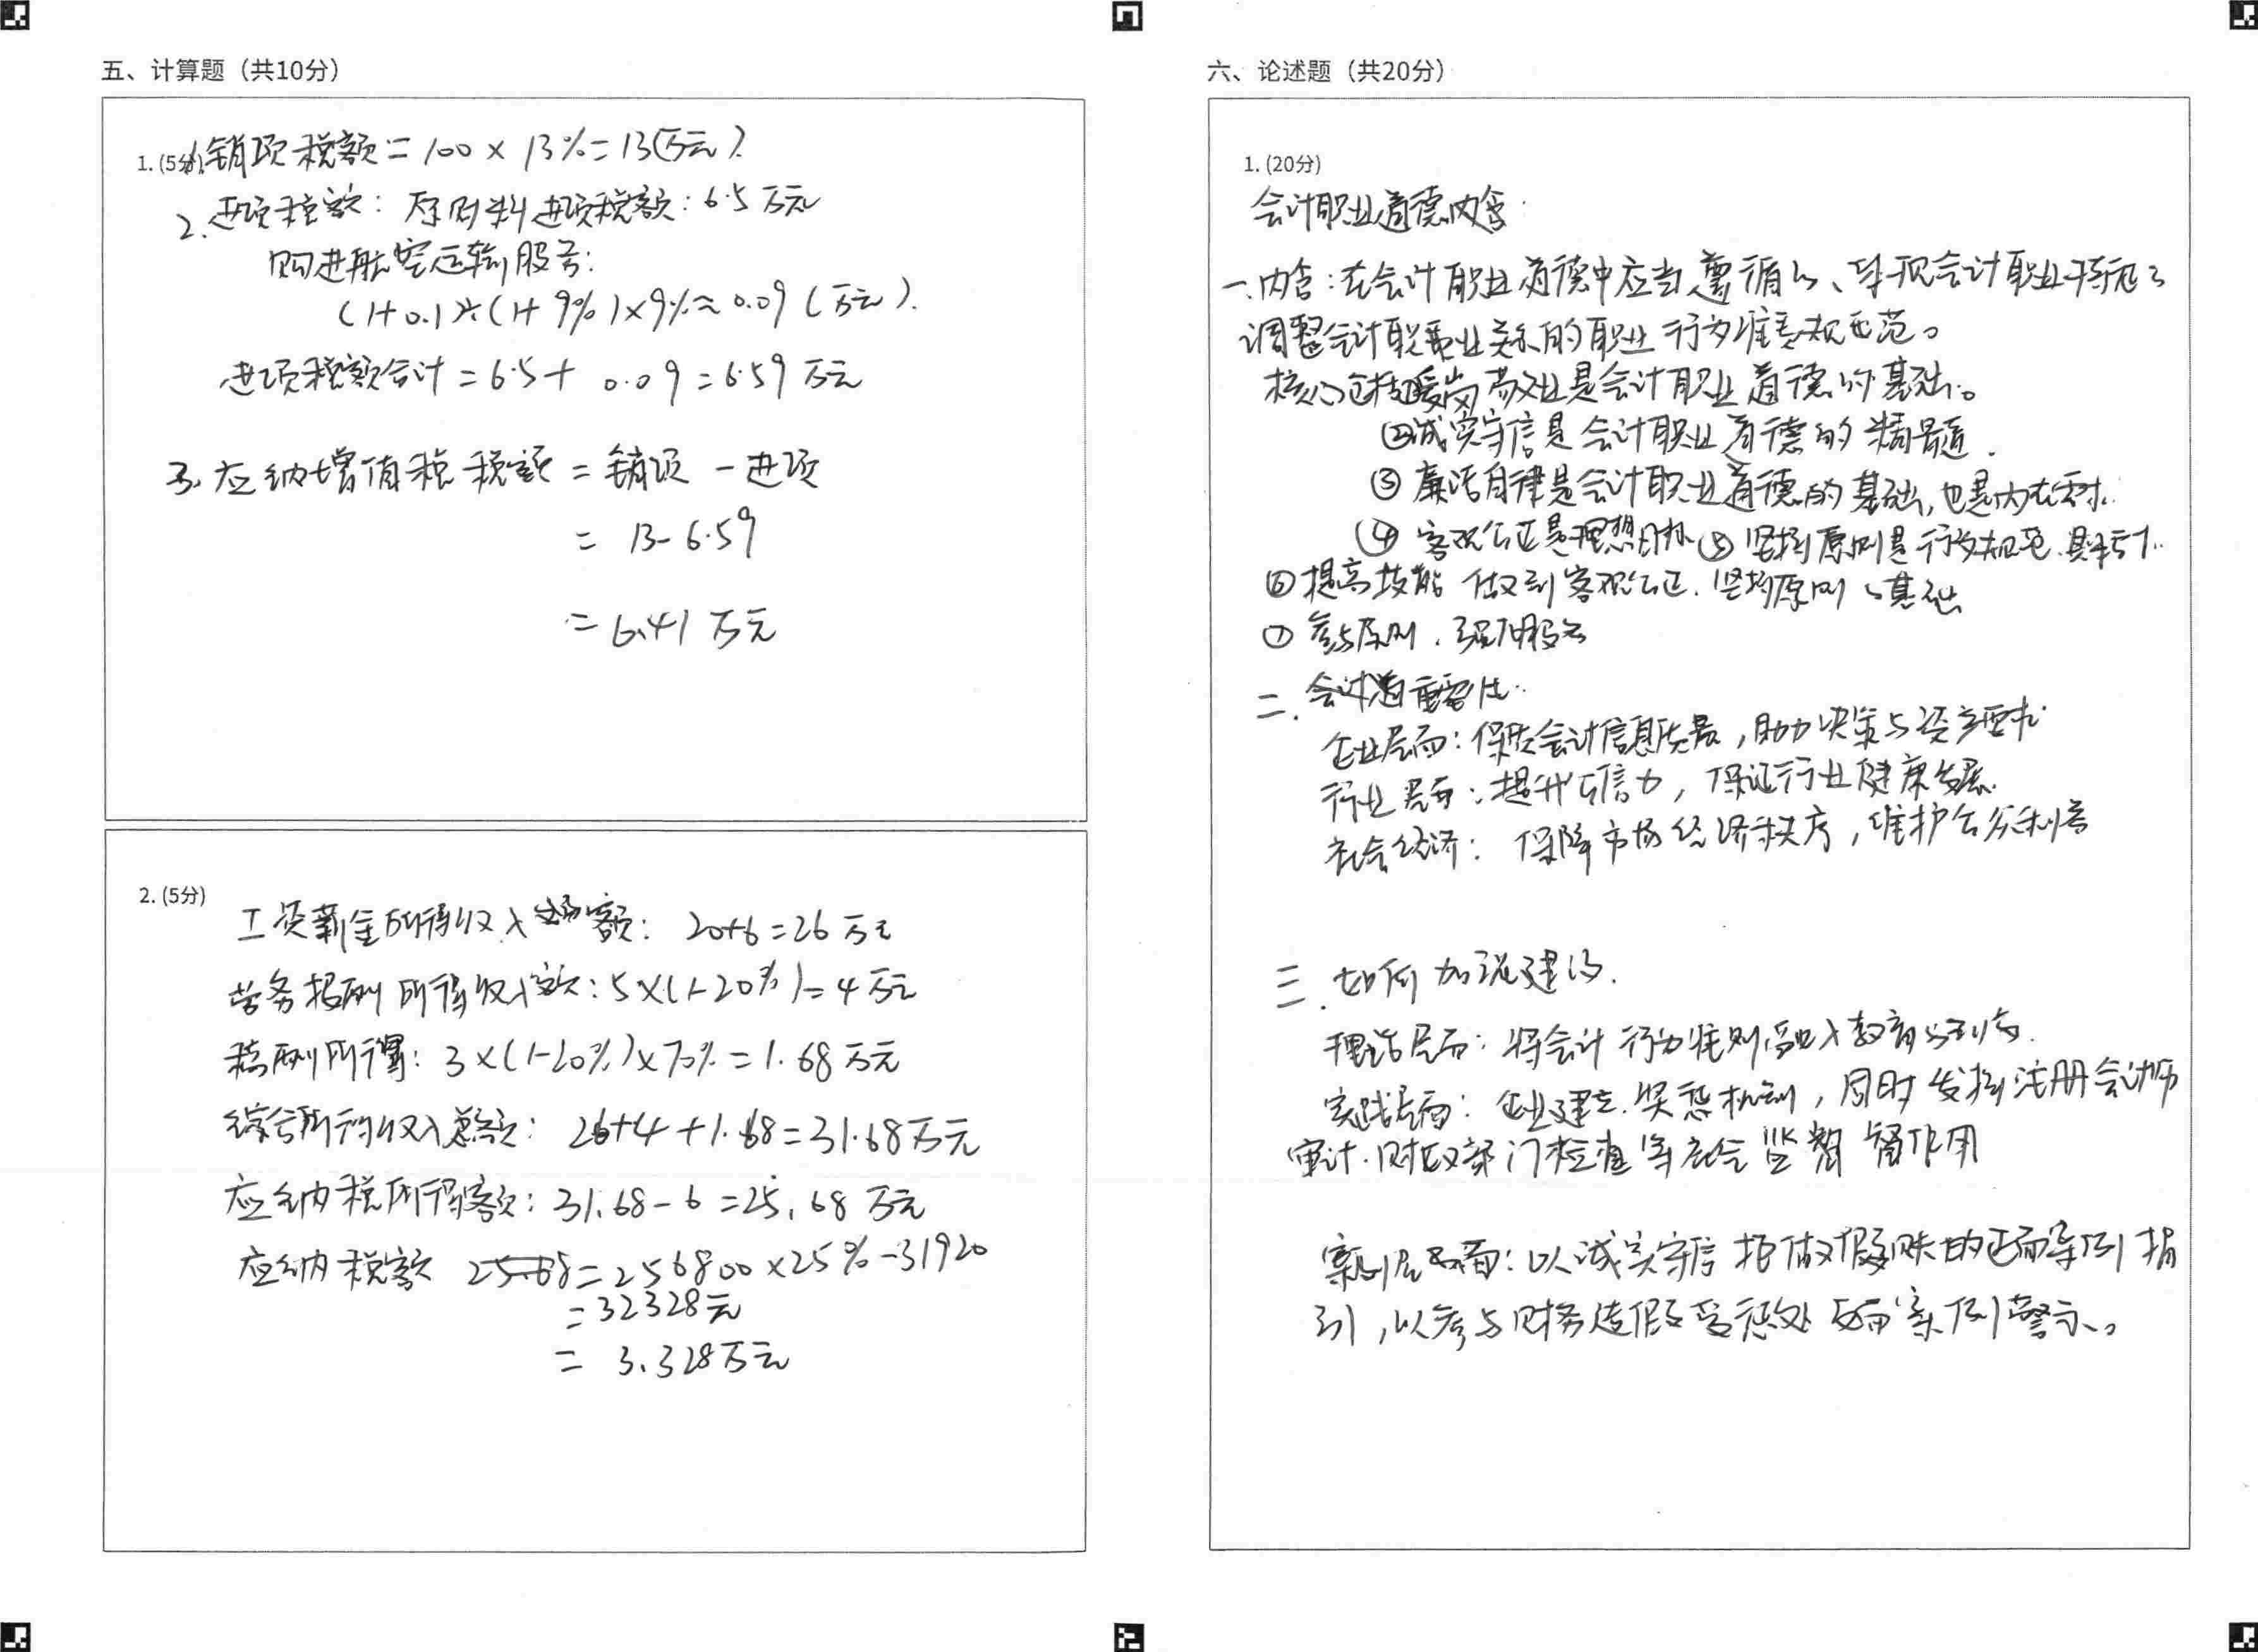 五、计算题（共10分）
1. (5分) 1.销项税额 = 100 × 13% = 13(万元).
2.进项税额：原材料进项税额：6.5万元
购进航空运输服务：
(1+0.1)÷(1+9%)×9% ≈ 0.09（万元）.
进项税额合计 = 6.5+ 0.09 = 6.59 万元
3. 应纳增值税税额 = 销项 - 进项
= 13-6.59
= 6.41 万元
2. (5分)
工资薪金所得收入额： 20+6=26万元
劳务报酬所得收入额：5×(1-20%)=4万元
稿酬所得：3×(1-20%)×70%=1.68万元
综合所得收入总额： 26+4+1.68=31.68万元
应纳税所得额：31.68-6=25.68 万元
应纳税额 =256800×25%-31920
=32328元
= 3.328万元
六、论述题（共20分）
1. (20分)
会计职业道德内含
一.内含：在会计职业道德中应当遵循的、体现会计职业特征的
调整会计职业关系的职业行为准则和规范。
核心包括①爱岗敬业是会计职业道德的基础。
②诚实守信是会计职业道德的精髓.
③廉洁自律是会计职业道德的基础,也是内在要求.
④ 客观公正是理想目标 ⑤ 坚持原则是行为规范.
⑥提高技能 做到客观公正.坚持原则的基础
⑦ 参与 . 强化服务
二. 会计道重要性.
企业层面：保质会计信息质量，助力决策与
行业层面：提升公信力，保证行业健康发展.
社会经济： 保障市场经济秩序，维护公众利益
三. 如何加强建设.
理论层面：将会计行为准则融入教育
实践层面：企业建立.奖惩机制，同时发挥注册会计师
审计.财政部门检查等社会监督作用
案例层面：以诚实守信拒做假账的正面案例指
引,以参与财务造假受惩处 案例警示。